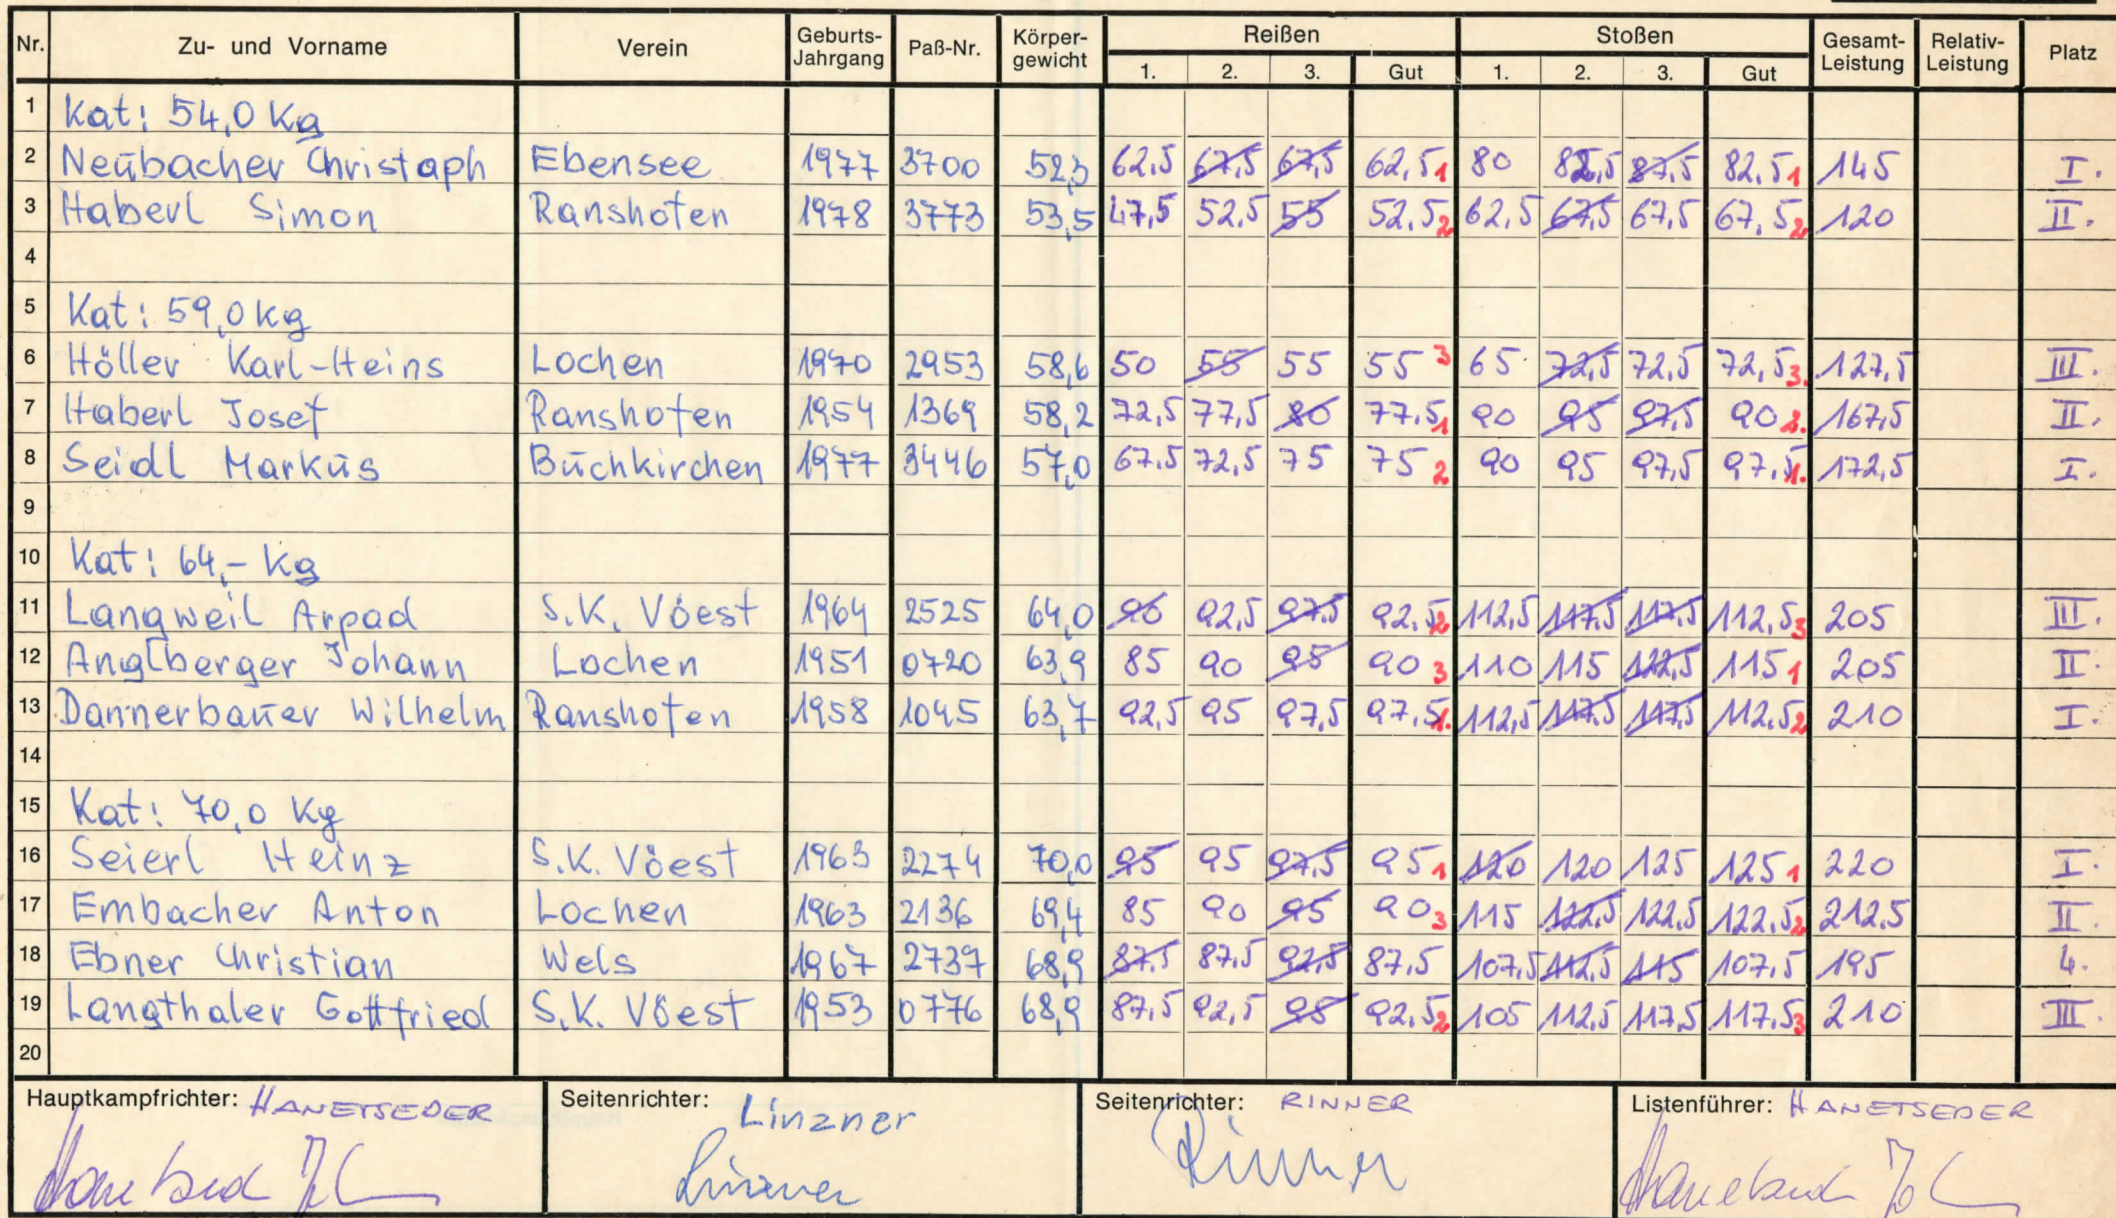 Nr. Zu- und Vorname Verein Geburts-Jahrgang Paß-Nr. Körper-gewicht Reißen Stoßen Gesamt-Leistung Relativ-Leistung Platz
1. 2. 3. Gut 1. 2. 3. Gut
1 Kat: 54,0 Kg
2 Neubacher Christoph Ebensee 1977 3700 52,3 62,5 67,5 67,5 62,5 1 80 82,5 87,5 82,5 1 145 I.
3 Haberl Simon Ranshofen 1978 3773 53,5 47,5 52,5 55 52,5 2 62,5 67,5 67,5 67,5 2 120 II.
4
5 Kat: 59,0 kg
6 Höller Karl-Heins Lochen 1970 2953 58,6 50 55 55 55 3 65 72,5 72,5 72,5 3. 127,5 III.
7 Haberl Josef Ranshofen 1954 1369 58,2 72,5 77,5 80 77,5 1 90 95 97,5 90 2. 167,5 II.
8 Seidl Markus Buchkirchen 1977 3446 57,0 67,5 72,5 75 75 2 90 95 97,5 97,5 1. 172,5 I.
9
10 Kat: 64,- Kg
11 Langweil Arpad S.K. Vöest 1964 2525 64,0 90 92,5 97,5 92,5 2 112,5 117,5 117,5 112,5 3 205 III.
12 Anglberger Johann Lochen 1951 0720 63,9 85 90 95 90 3 110 115 122,5 115 1 205 II.
13 Dannerbauer Wilhelm Ranshofen 1958 1045 63,7 92,5 95 97,5 97,5 1. 112,5 117,5 117,5 112,5 2 210 I.
14
15 Kat: 70,0 Kg
16 Seierl Heinz S.K. Vöest 1963 2274 70,0 95 95 97,5 95 1 120 120 125 125 1 220 I.
17 Embacher Anton Lochen 1963 2136 69,4 85 90 95 90 3 115 122,5 122,5 122,5 2 212,5 II.
18 Ebner Christian Wels 1967 2737 68,9 87,5 87,5 92,5 87,5 107,5 112,5 115 107,5 195 4.
19 Langthaler Gottfried S.K. Vöest 1953 0776 68,9 87,5 92,5 95 92,5 2 105 112,5 117,5 117,5 3 210 III.
20
Hauptkampfrichter: HANETSEDER Seitenrichter: Linzner Seitenrichter: RINNER Listenführer: HANETSEDER
Linzner Rinner